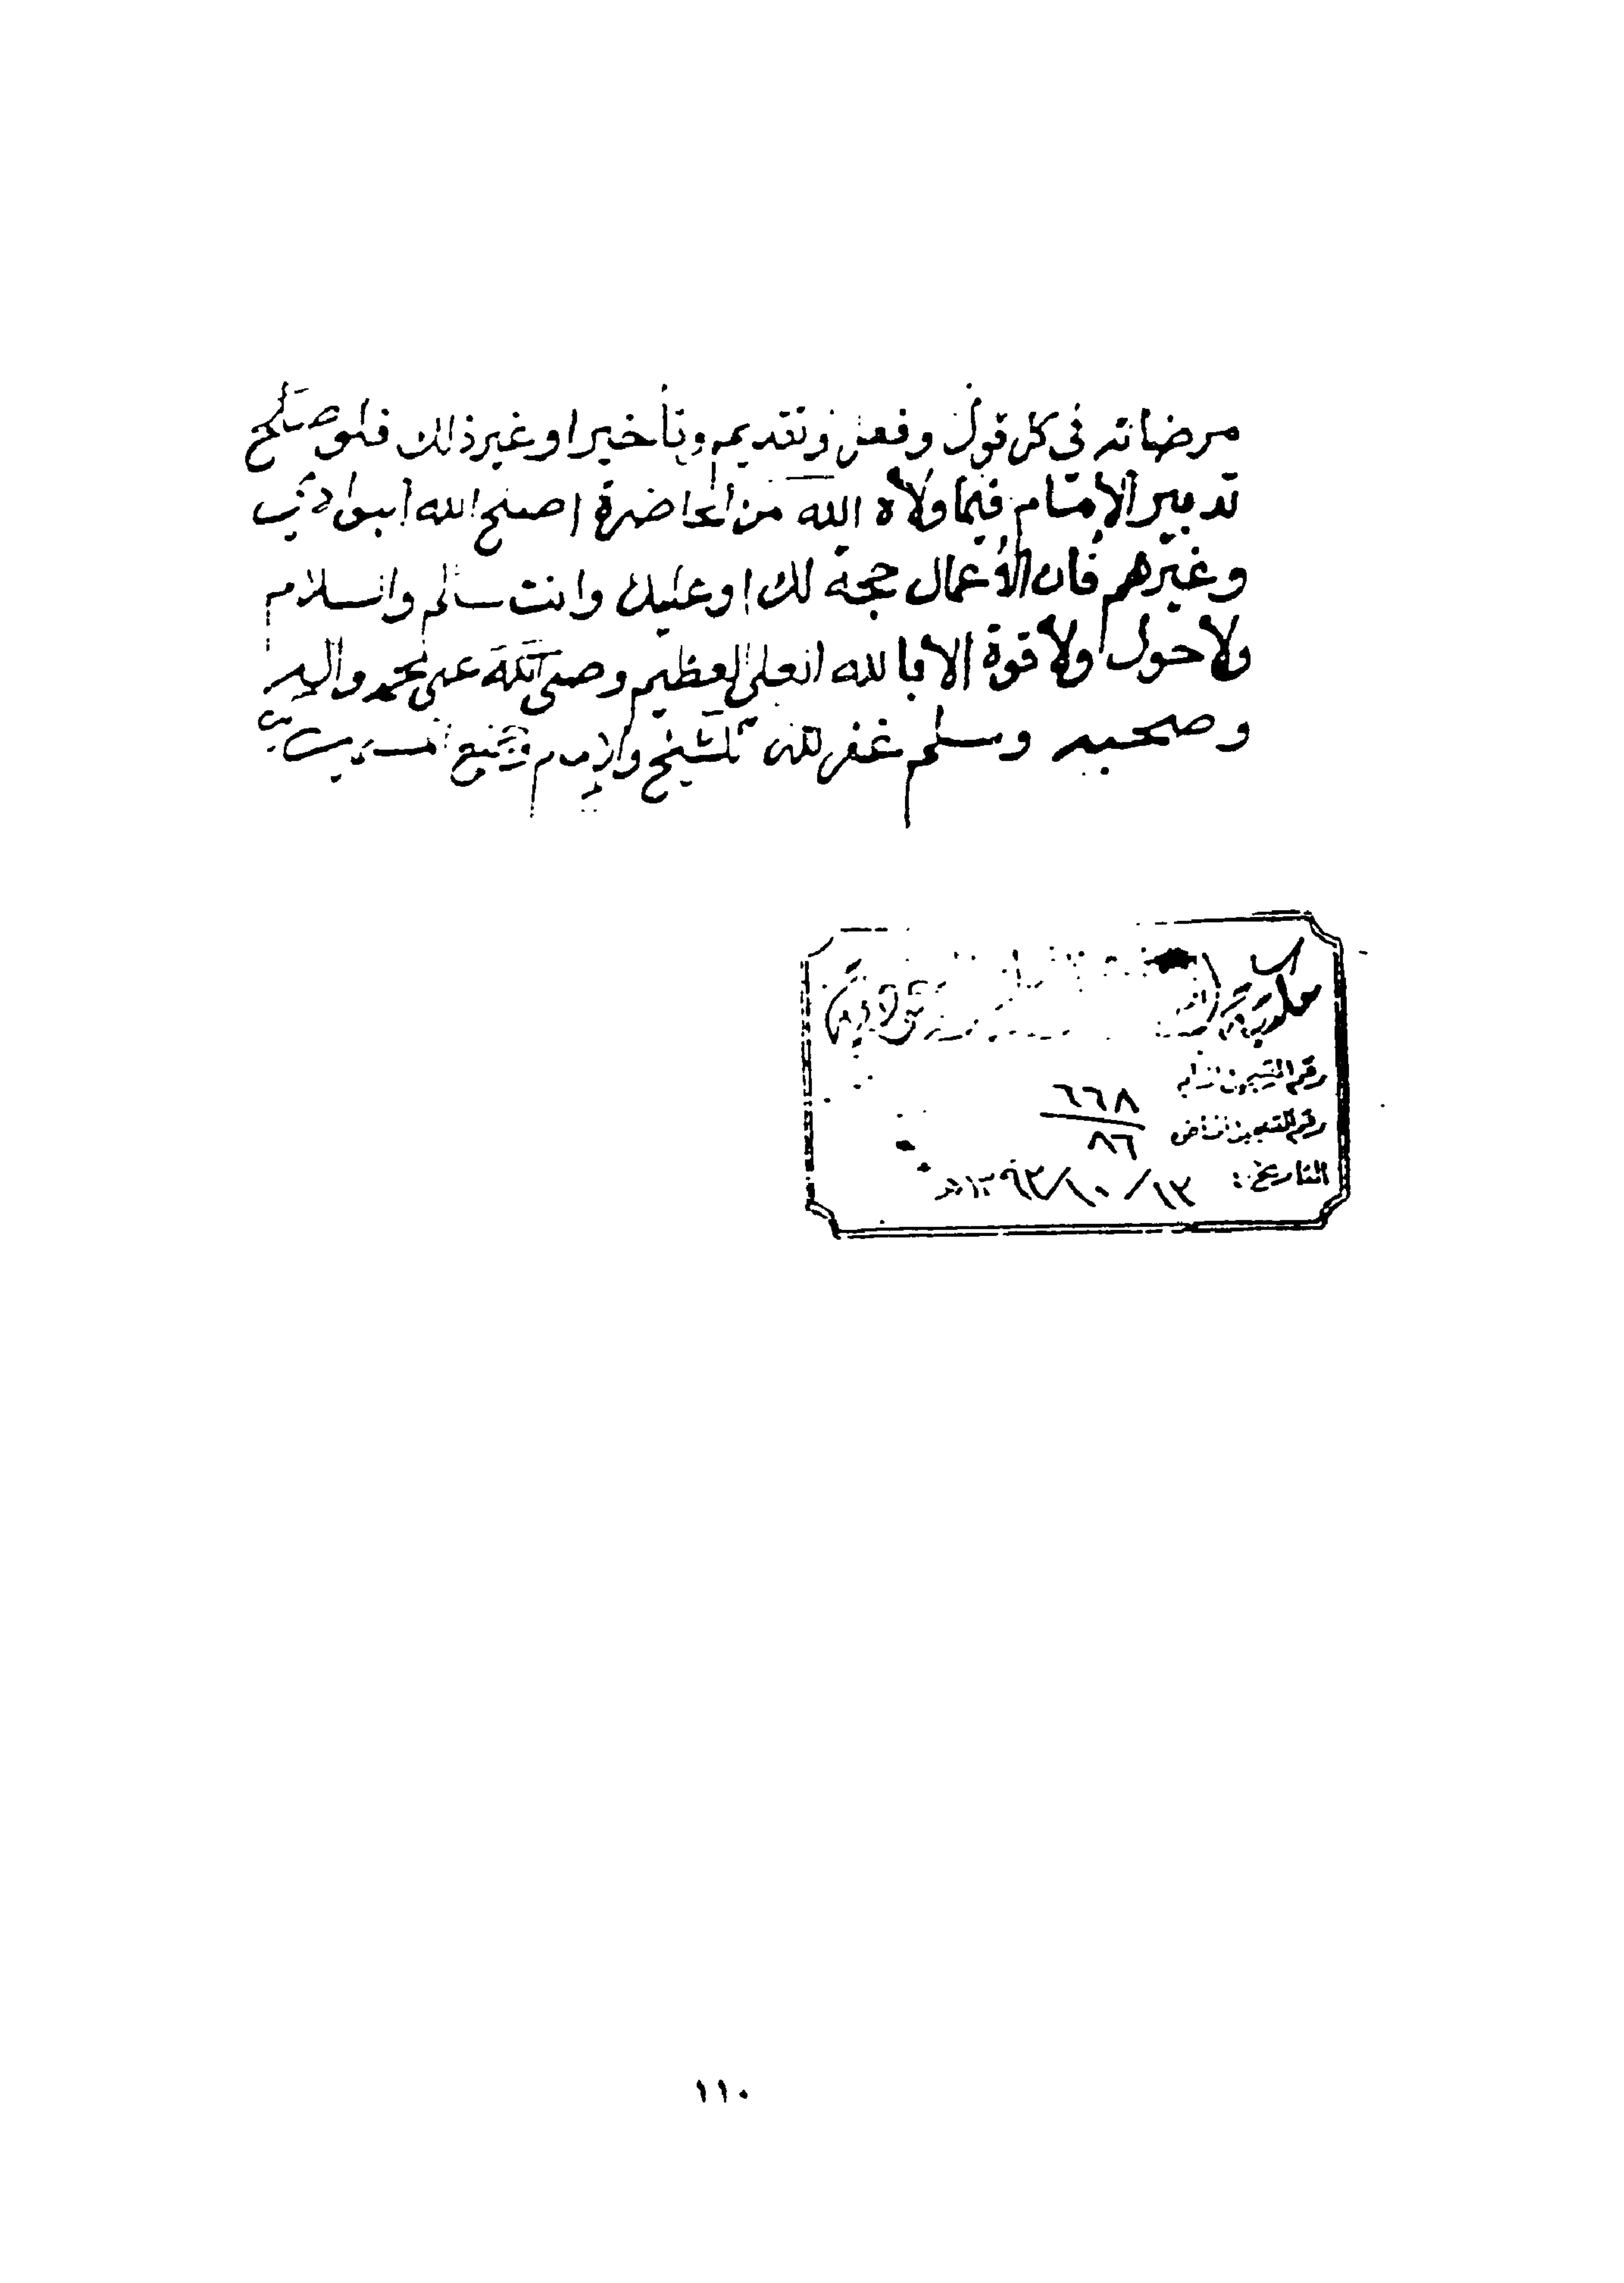 مرضاته في كل قول وفعل وتقديم وتأخير او غير ذلك فلو صلح
تدبير الإمام فيما ولاه الله من الحاضرة اصلح الله البوادي
وغيرهم فان الأعمال حجة لك او عليك وانت سالم والسلام
ولا حول ولا قوة الا بالله العلي العظيم وصلى الله على محمد واله
وصحبه وسلم غفر الله للشيخ والإمام وجميع المسلمين
مكتبة
رقم التسجيل العام
٦٦٨
رقم التسجيل الخاص
٨٦
التاريخ: ١٣/١٠/١٣٩٣هـ
١١٠